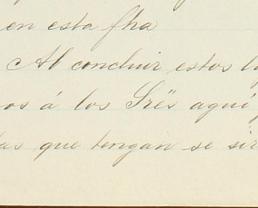 en esta fha
Al concluir estos
os á los Srës aqui
as que tengan se sir